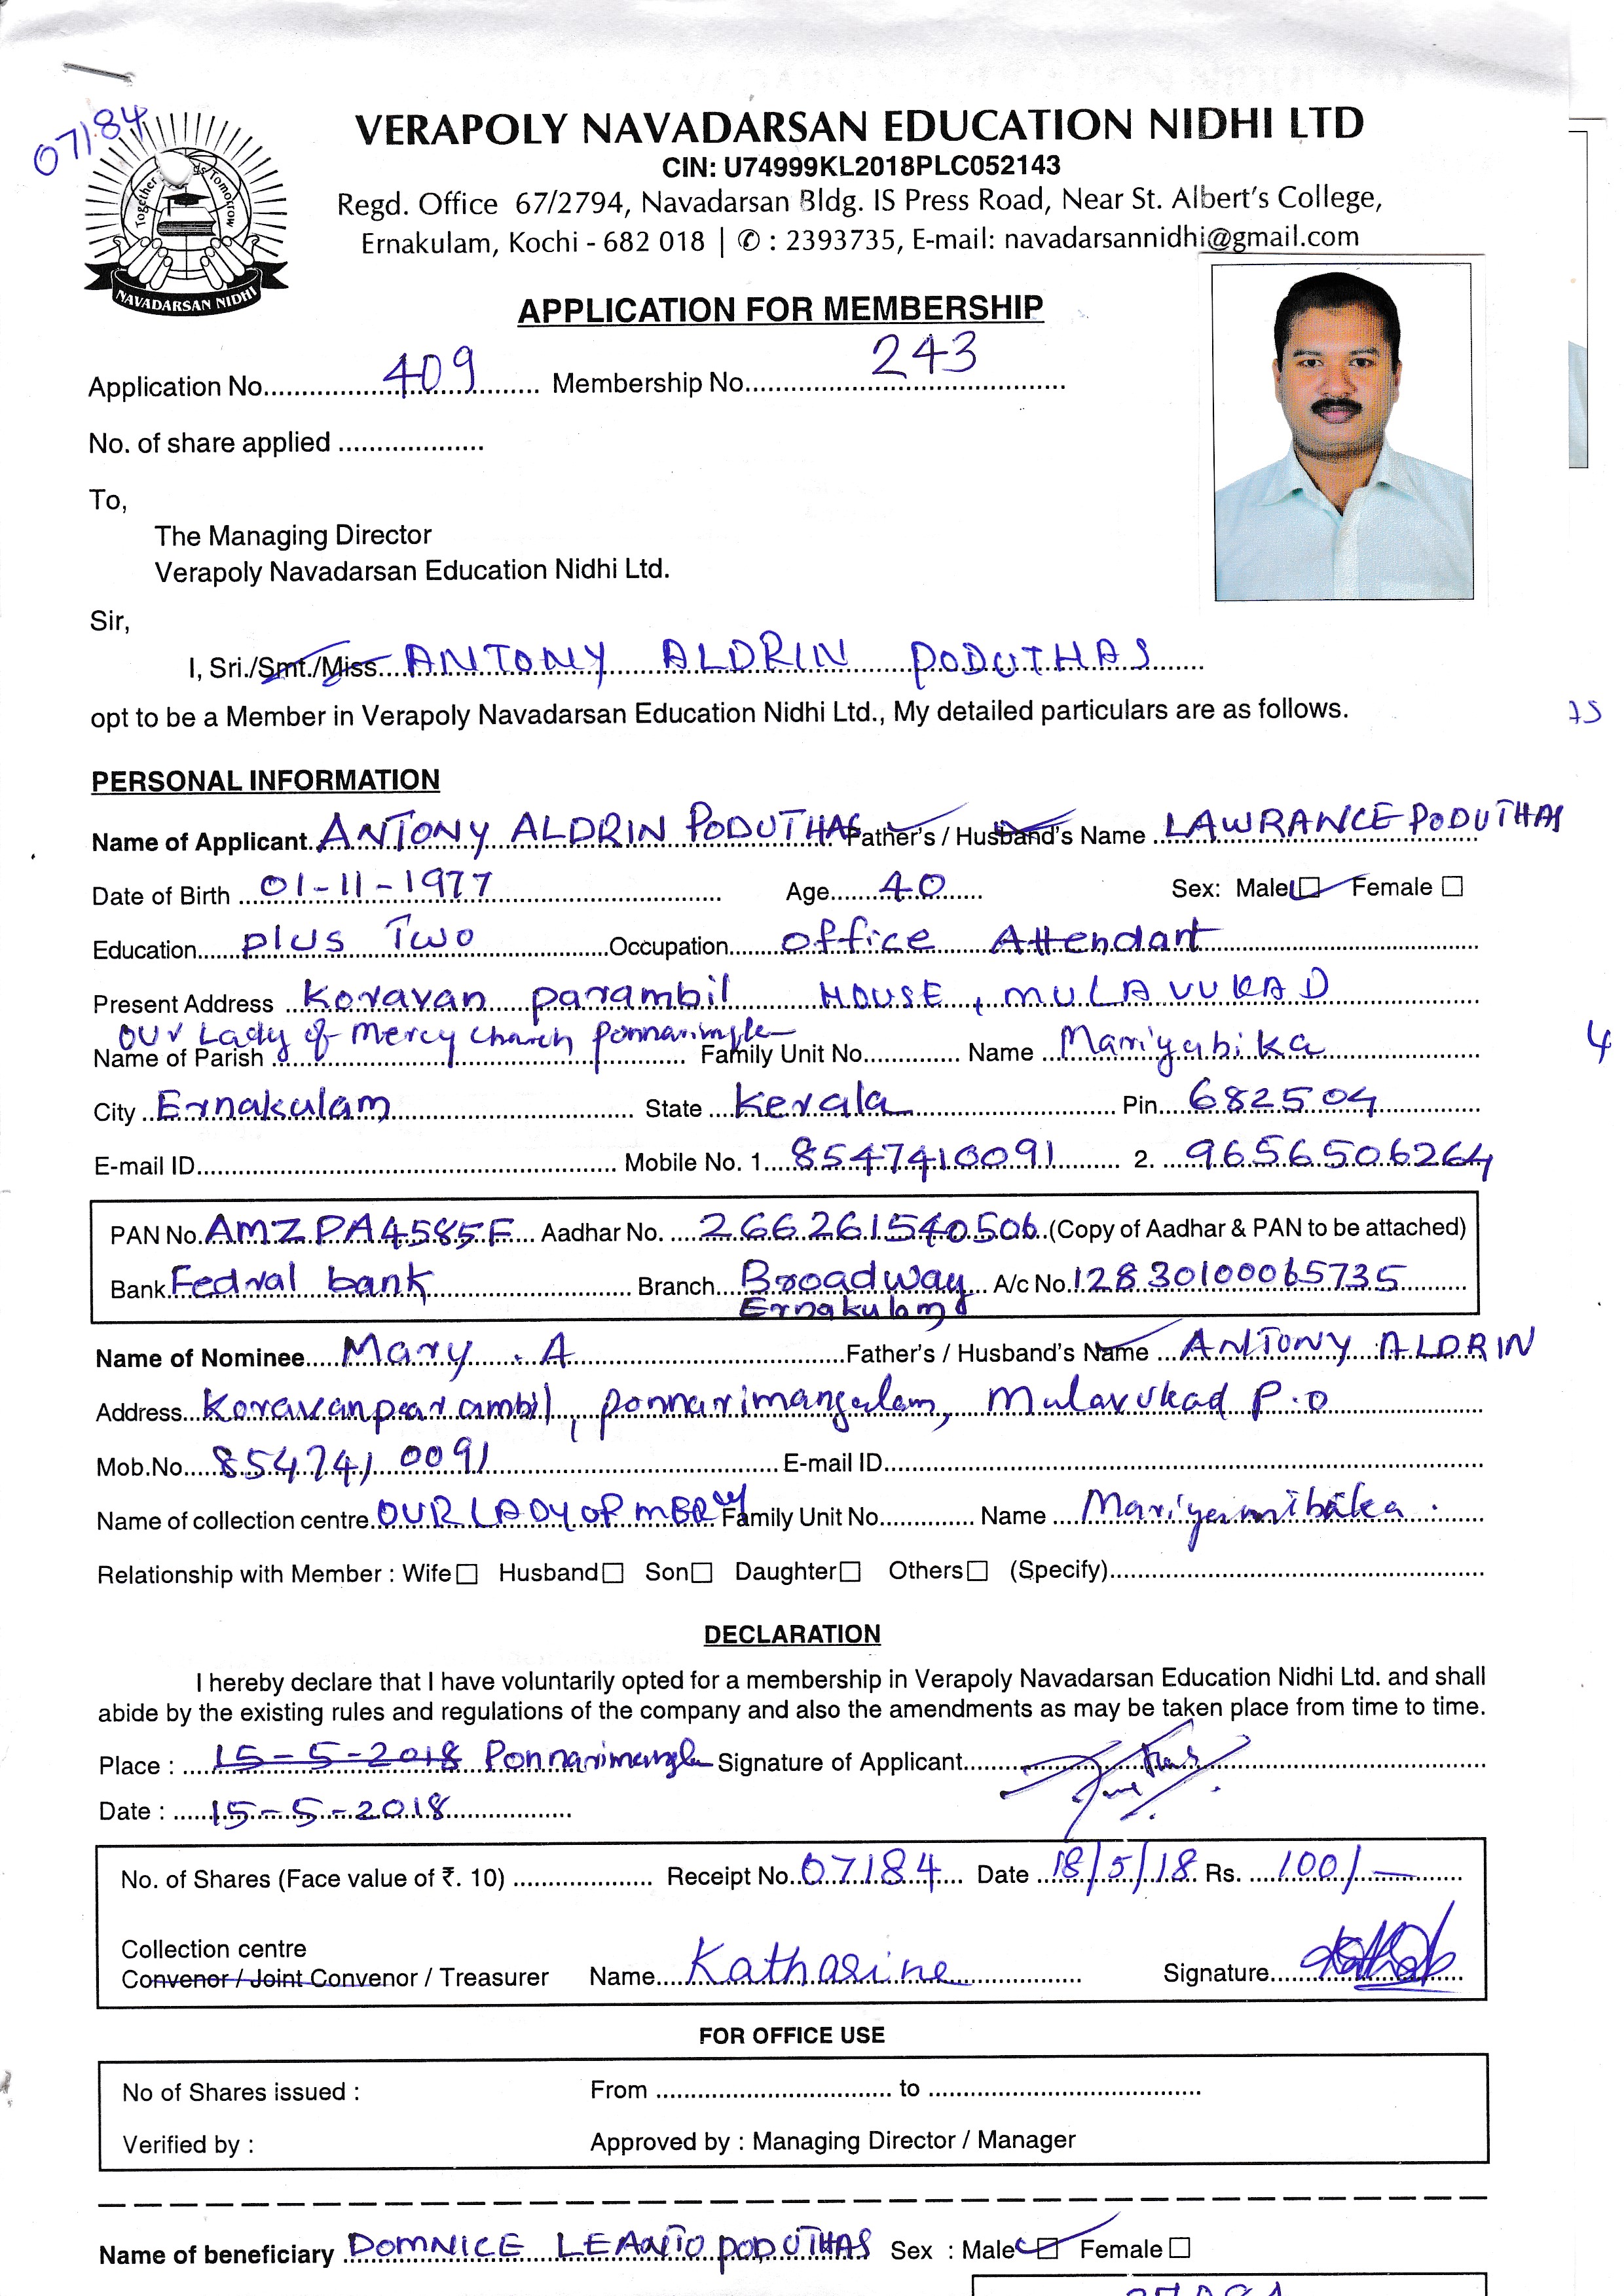 07184
Together towards Tomorrow
NAVADARSAN NIDHI
VERAPOLY NAVADARSAN EDUCATION NIDHI LTD
CIN: U74999KL2018PLC052143
Regd. Office 67/2794, Navadarsan Bldg. IS Press Road, Near St. Albert's College,
Ernakulam, Kochi - 682 018 | ✆ : 2393735, E-mail: navadarsannidhi@gmail.com
APPLICATION FOR MEMBERSHIP
Application No. 409 Membership No. 243
No. of share applied
To,
The Managing Director
Verapoly Navadarsan Education Nidhi Ltd.
Sir,
I, Sri./Smt./Miss. ANTONY ALDRIN PODUTHAS
opt to be a Member in Verapoly Navadarsan Education Nidhi Ltd., My detailed particulars are as follows.
PERSONAL INFORMATION
Name of Applicant. ANTONY ALDRIN PODUTHAS Father's / Husband's Name LAWRANCE PODUTHAS
Date of Birth 01-11-1977 Age 40 Sex: Male Female
Education plus Two Occupation office Attendant
Present Address Koravan parambil HOUSE, MULAVUKAD
Name of Parish Our Lady of Mercy Church Family Unit No. Name
City Ernakulam State Kerala Pin 682504
E-mail ID Mobile No. 1 8547410091 2. 9656506264
PAN No. AMZPA4585F Aadhar No. 266261540506 (Copy of Aadhar & PAN to be attached)
Bank Fedral bank Branch Broadway A/c No. 12830100065735
Ernakulam
Name of Nominee Mary . A Father's / Husband's Name ANTONY ALDRIN
Address Koravanparambil, ponnarimangalam, Mulavukad P.O
Mob.No. 8547410091 E-mail ID
Name of collection centre OUR LADY OF MERCY Family Unit No. Name
Relationship with Member : Wife Husband Son Daughter Others (Specify)
DECLARATION
I hereby declare that I have voluntarily opted for a membership in Verapoly Navadarsan Education Nidhi Ltd. and shall
abide by the existing rules and regulations of the company and also the amendments as may be taken place from time to time.
Place : 15-5-2018 Signature of Applicant
Date : 15-5-2018
No. of Shares (Face value of ₹. 10) Receipt No. 07184 Date 18/5/18 Rs. 100/-
Collection centre
Convenor / Joint Convenor / Treasurer Name Katharine Signature
FOR OFFICE USE
No of Shares issued : From to
Verified by : Approved by : Managing Director / Manager
Name of beneficiary DOMNICE LEANTO PODUTHAS Sex : Male Female